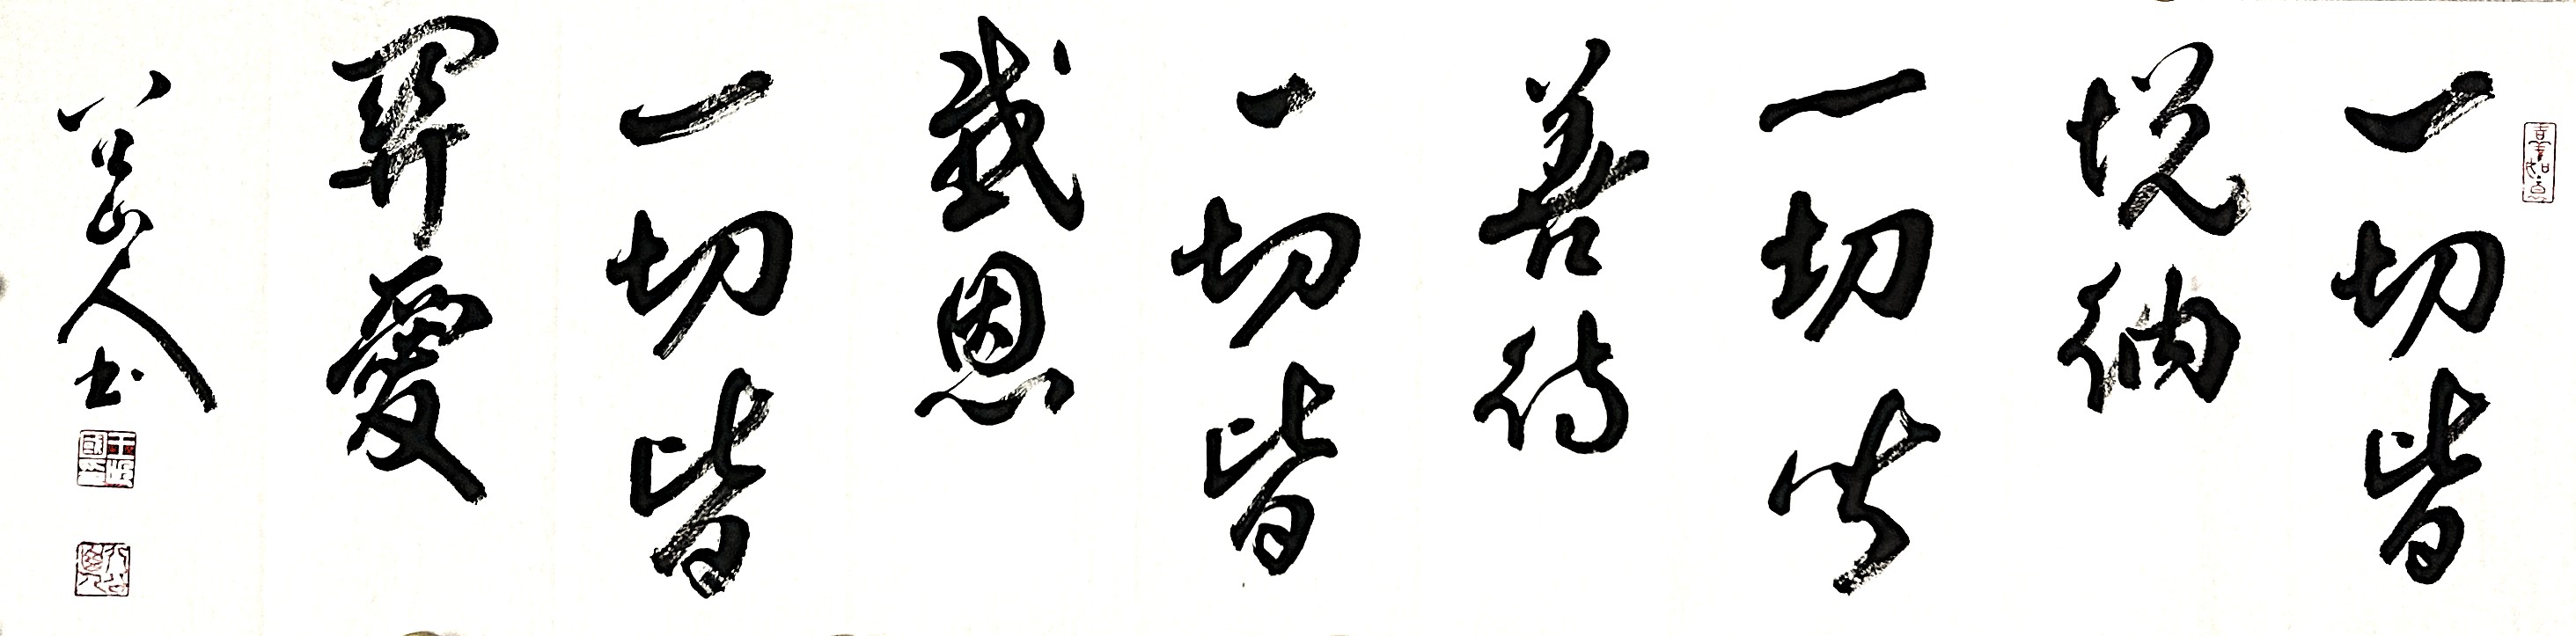 一切皆
悦纳
一切皆
善待
一切皆
感恩
一切皆
关爱
八公山人书